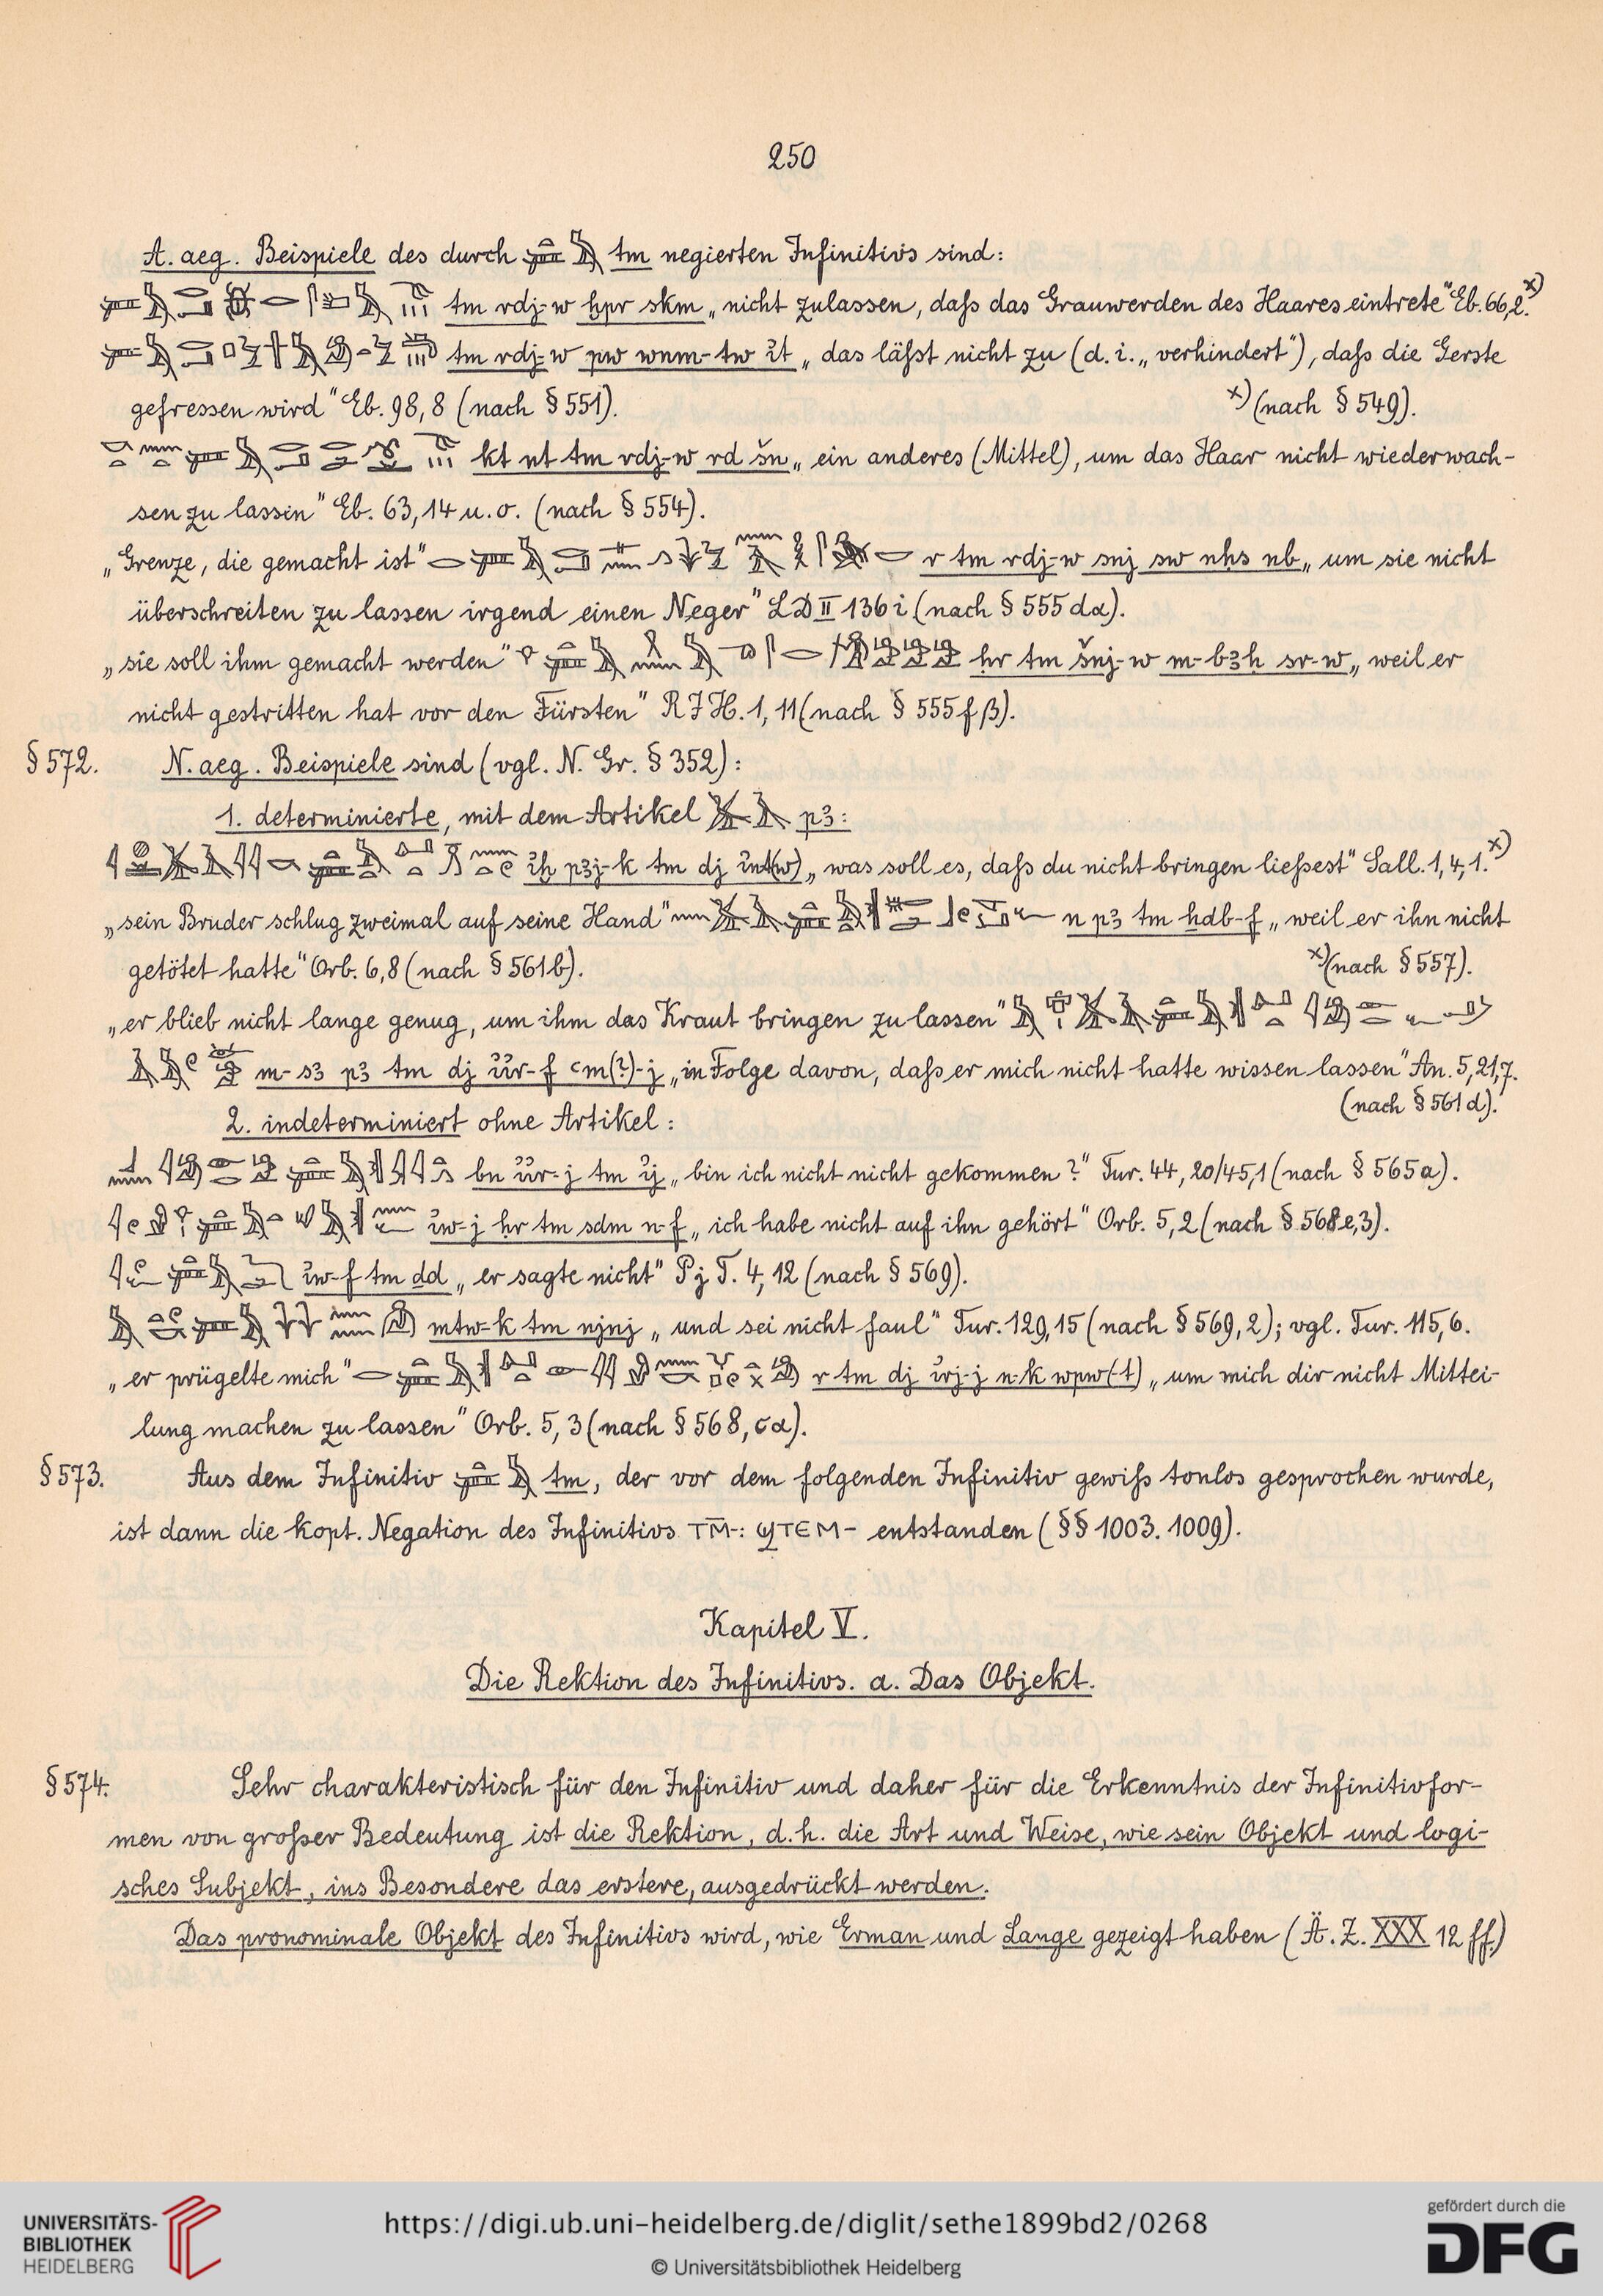 250
A. aeg. Beispiele des durch tm negierten Infinitivs sind:
tm rdj-w ḫpr skm „nicht zulassen, daß das Grauwerden des Haares eintrete" Eb. 66,2. x)
tm rdj-w pw wnm-tw ỉt „das läßt nicht zu (d. i. „verhindert"), daß die Gerste
gefressen wird" Eb. 98, 8 (nach § 551). x) (nach § 549).
kt nt tm rdj-w rd šn „ein anderes (Mittel), um das Haar nicht wiederwach-
sen zu lassen" Eb. 63, 14 u. o. (nach § 554).
„Grenze, die gemacht ist" r tm rdj-w snj sw nḥs nb „um sie nicht
überschreiten zu lassen irgend einen Neger" LD II 136 i (nach § 555 dα).
„sie soll ihm gemacht werden" ḥr tm šnj-w m-bꜣḥ sr-w „weil er
nicht gestritten hat vor den Fürsten" RJH. 1, 11 (nach § 555 f β).
§ 572. N. aeg. Beispiele sind (vgl. N. Gr. § 352):
1. determinierte, mit dem Artikel pꜣ:
ỉḫ pꜣj-k tm dj ỉnt(w) „was soll es, daß du nicht bringen ließest" Sall. 1, 4, 1. x)
„sein Bruder schlug zweimal auf seine Hand" n pꜣ tm ḫdb-f „weil er ihn nicht
getötet hatte" Orb. 6, 8 (nach § 561 b). x) (nach § 557).
„er blieb nicht lange genug, um ihm das Kraut bringen zu lassen"
m-sꜣ pꜣ tm dj ỉỉr-f cm(?)-j „in Folge davon, daß er mich nicht hatte wissen lassen" An. 5, 21, 7.
(nach § 561 d).
2. indeterminiert ohne Artikel:
bn ỉỉr-j tm ỉj „bin ich nicht nicht gekommen?" Tur. 44, 20/45,1 (nach § 565 a).
ỉw-j ḥr tm sdm n-f „ich habe nicht auf ihn gehört" Orb. 5, 2 (nach § 568 e, 3).
ỉw-f tm dd „er sagte nicht" Pj T. 4, 12 (nach § 569).
mtw-k tm njnj „und sei nicht faul" Tur. 129, 15 (nach § 569, 2); vgl. Tur. 115, 6.
„er prügelte mich" r tm dj ỉrj-j n-k wpw(-t) „um mich dir nicht Mittei-
lung machen zu lassen" Orb. 5, 3 (nach § 568, cα).
§ 573. Aus dem Infinitiv tm, der vor dem folgenden Infinitiv gewiß tonlos gesprochen wurde,
ist dann die kopt. Negation des Infinitivs ⲧⲙ̅-: ϣⲧⲉⲙ- entstanden (§§ 1003. 1009).
Kapitel V.
Die Rektion des Infinitivs. a. Das Objekt.
§ 574. Sehr charakteristisch für den Infinitiv und daher für die Erkenntnis der Infinitivfor-
men von großer Bedeutung ist die Rektion, d. h. die Art und Weise, wie sein Objekt und logi-
sches Subjekt, ins Besondere das erstere, ausgedrückt werden.
Das pronominale Objekt des Infinitivs wird, wie Erman und Lange gezeigt haben (Ä. Z. XXX 12 ff.)
UNIVERSITÄTS-
BIBLIOTHEK
HEIDELBERG
https://digi.ub.uni-heidelberg.de/diglit/sethe1899bd2/0268
© Universitätsbibliothek Heidelberg
gefördert durch die
DFG